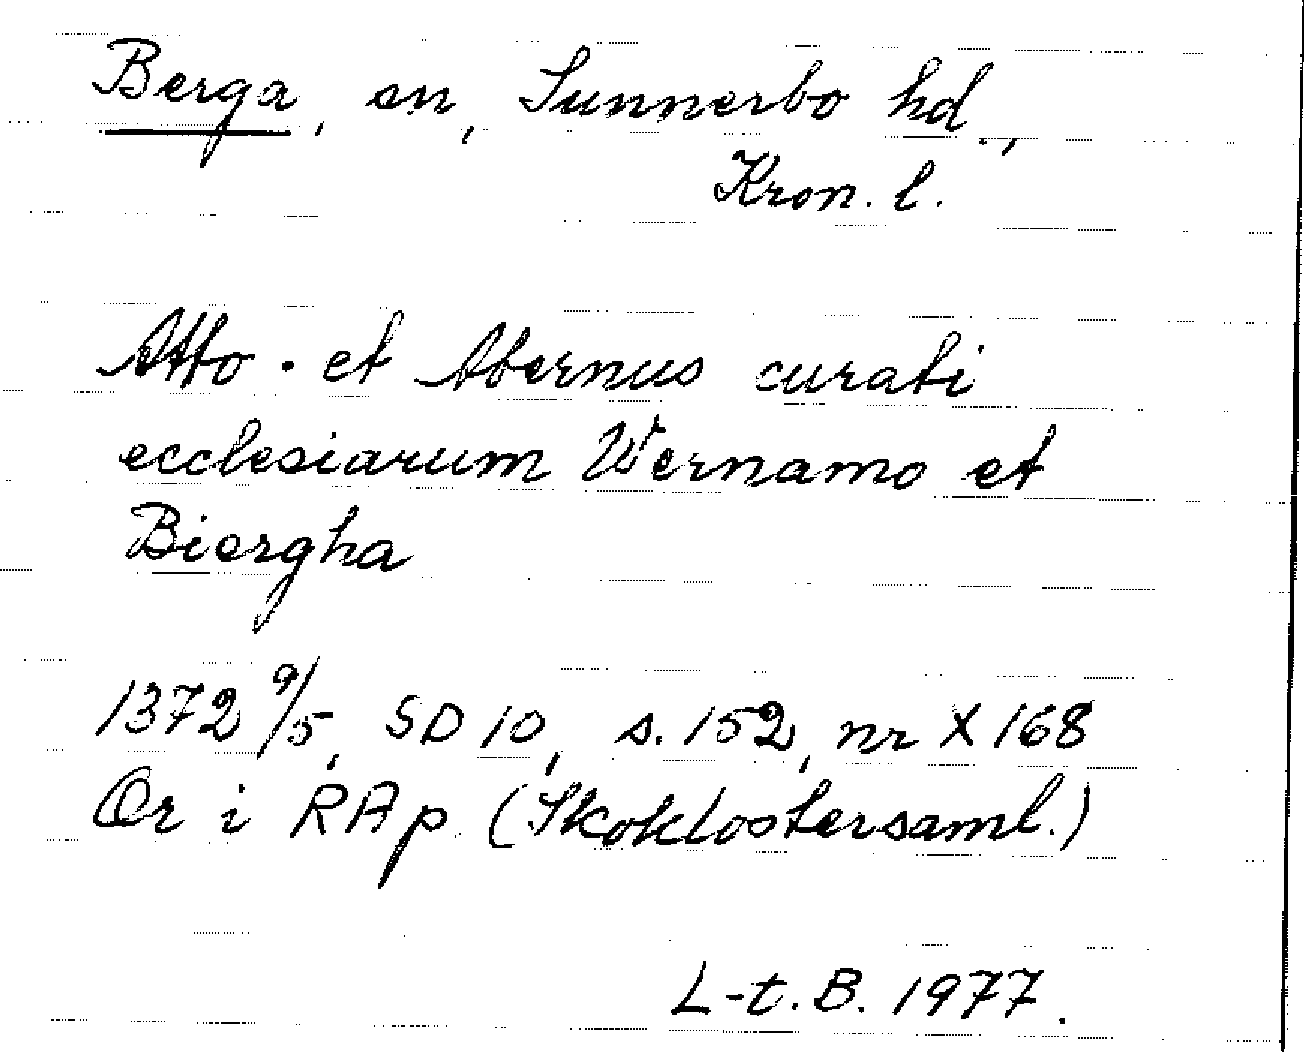 Berga, sn, Sunnerbo hd.,
Kron. l.
Atto. et Abernus curati
ecclesiarum Wernamo et
Biergha
1372 9/5, SD 10, s. 152, nr X 168
Or i RAp (Skoklostersaml.)
L-t. B. 1977.